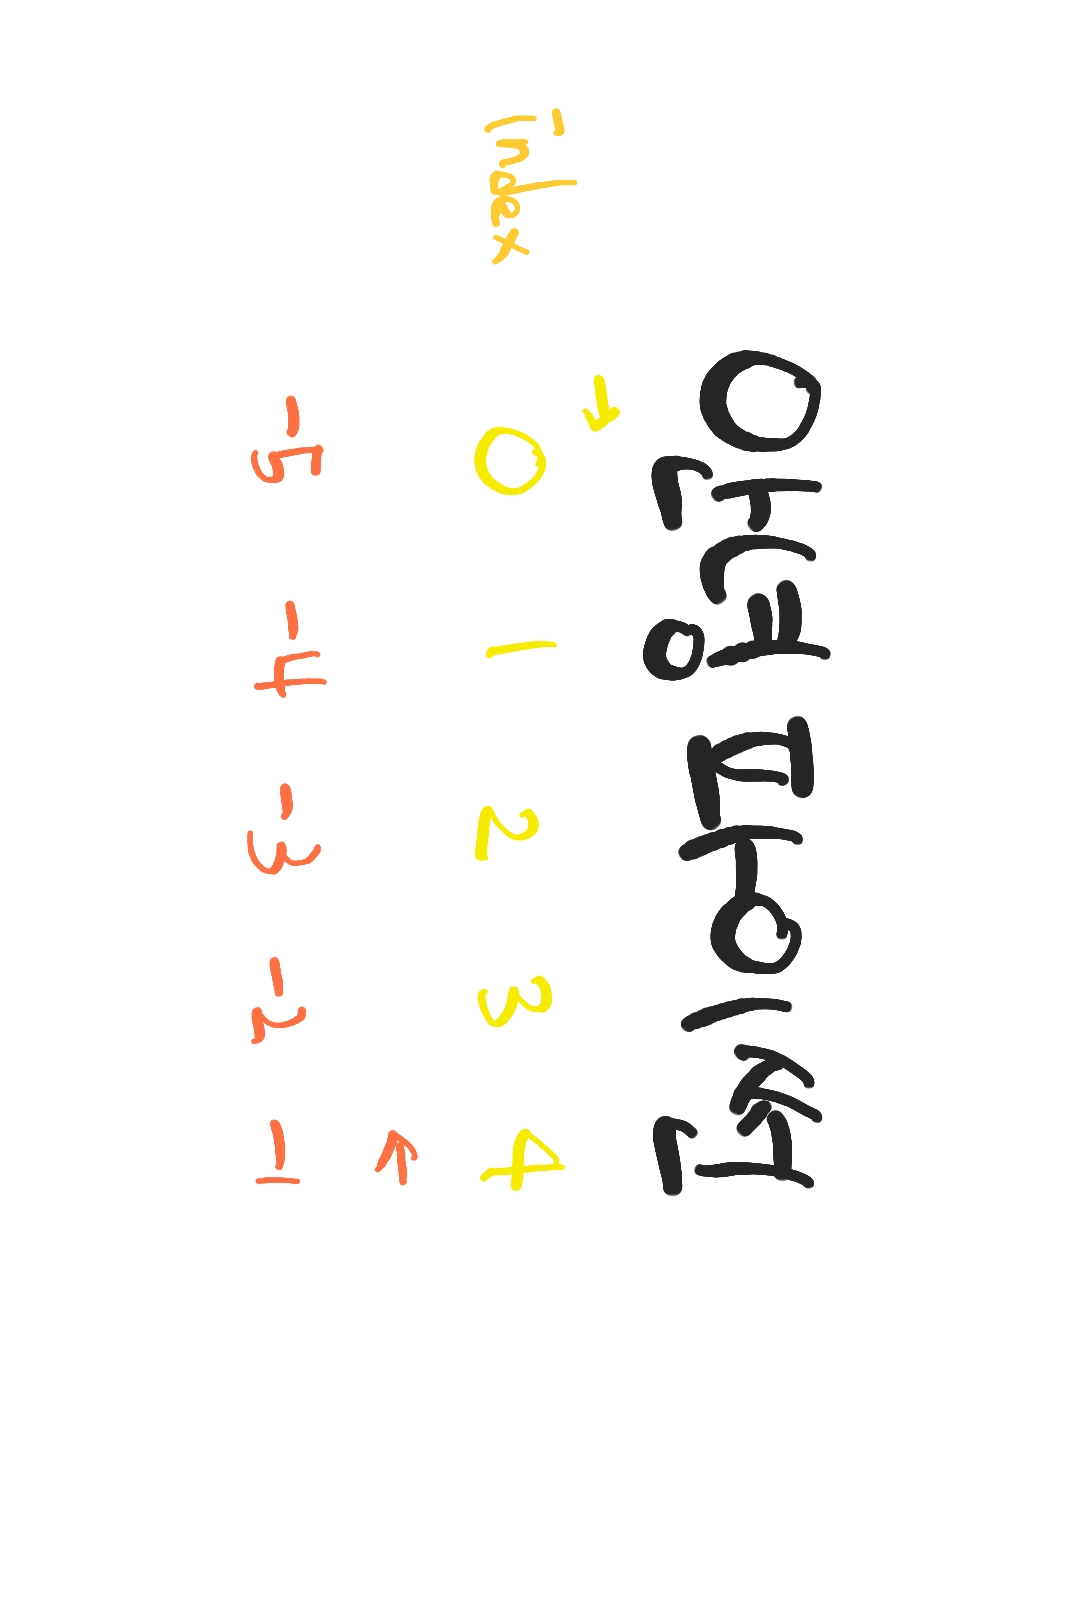 안녕파이썬
→
index 0 1 2 3 4
←
-5 -4 -3 -2 -1